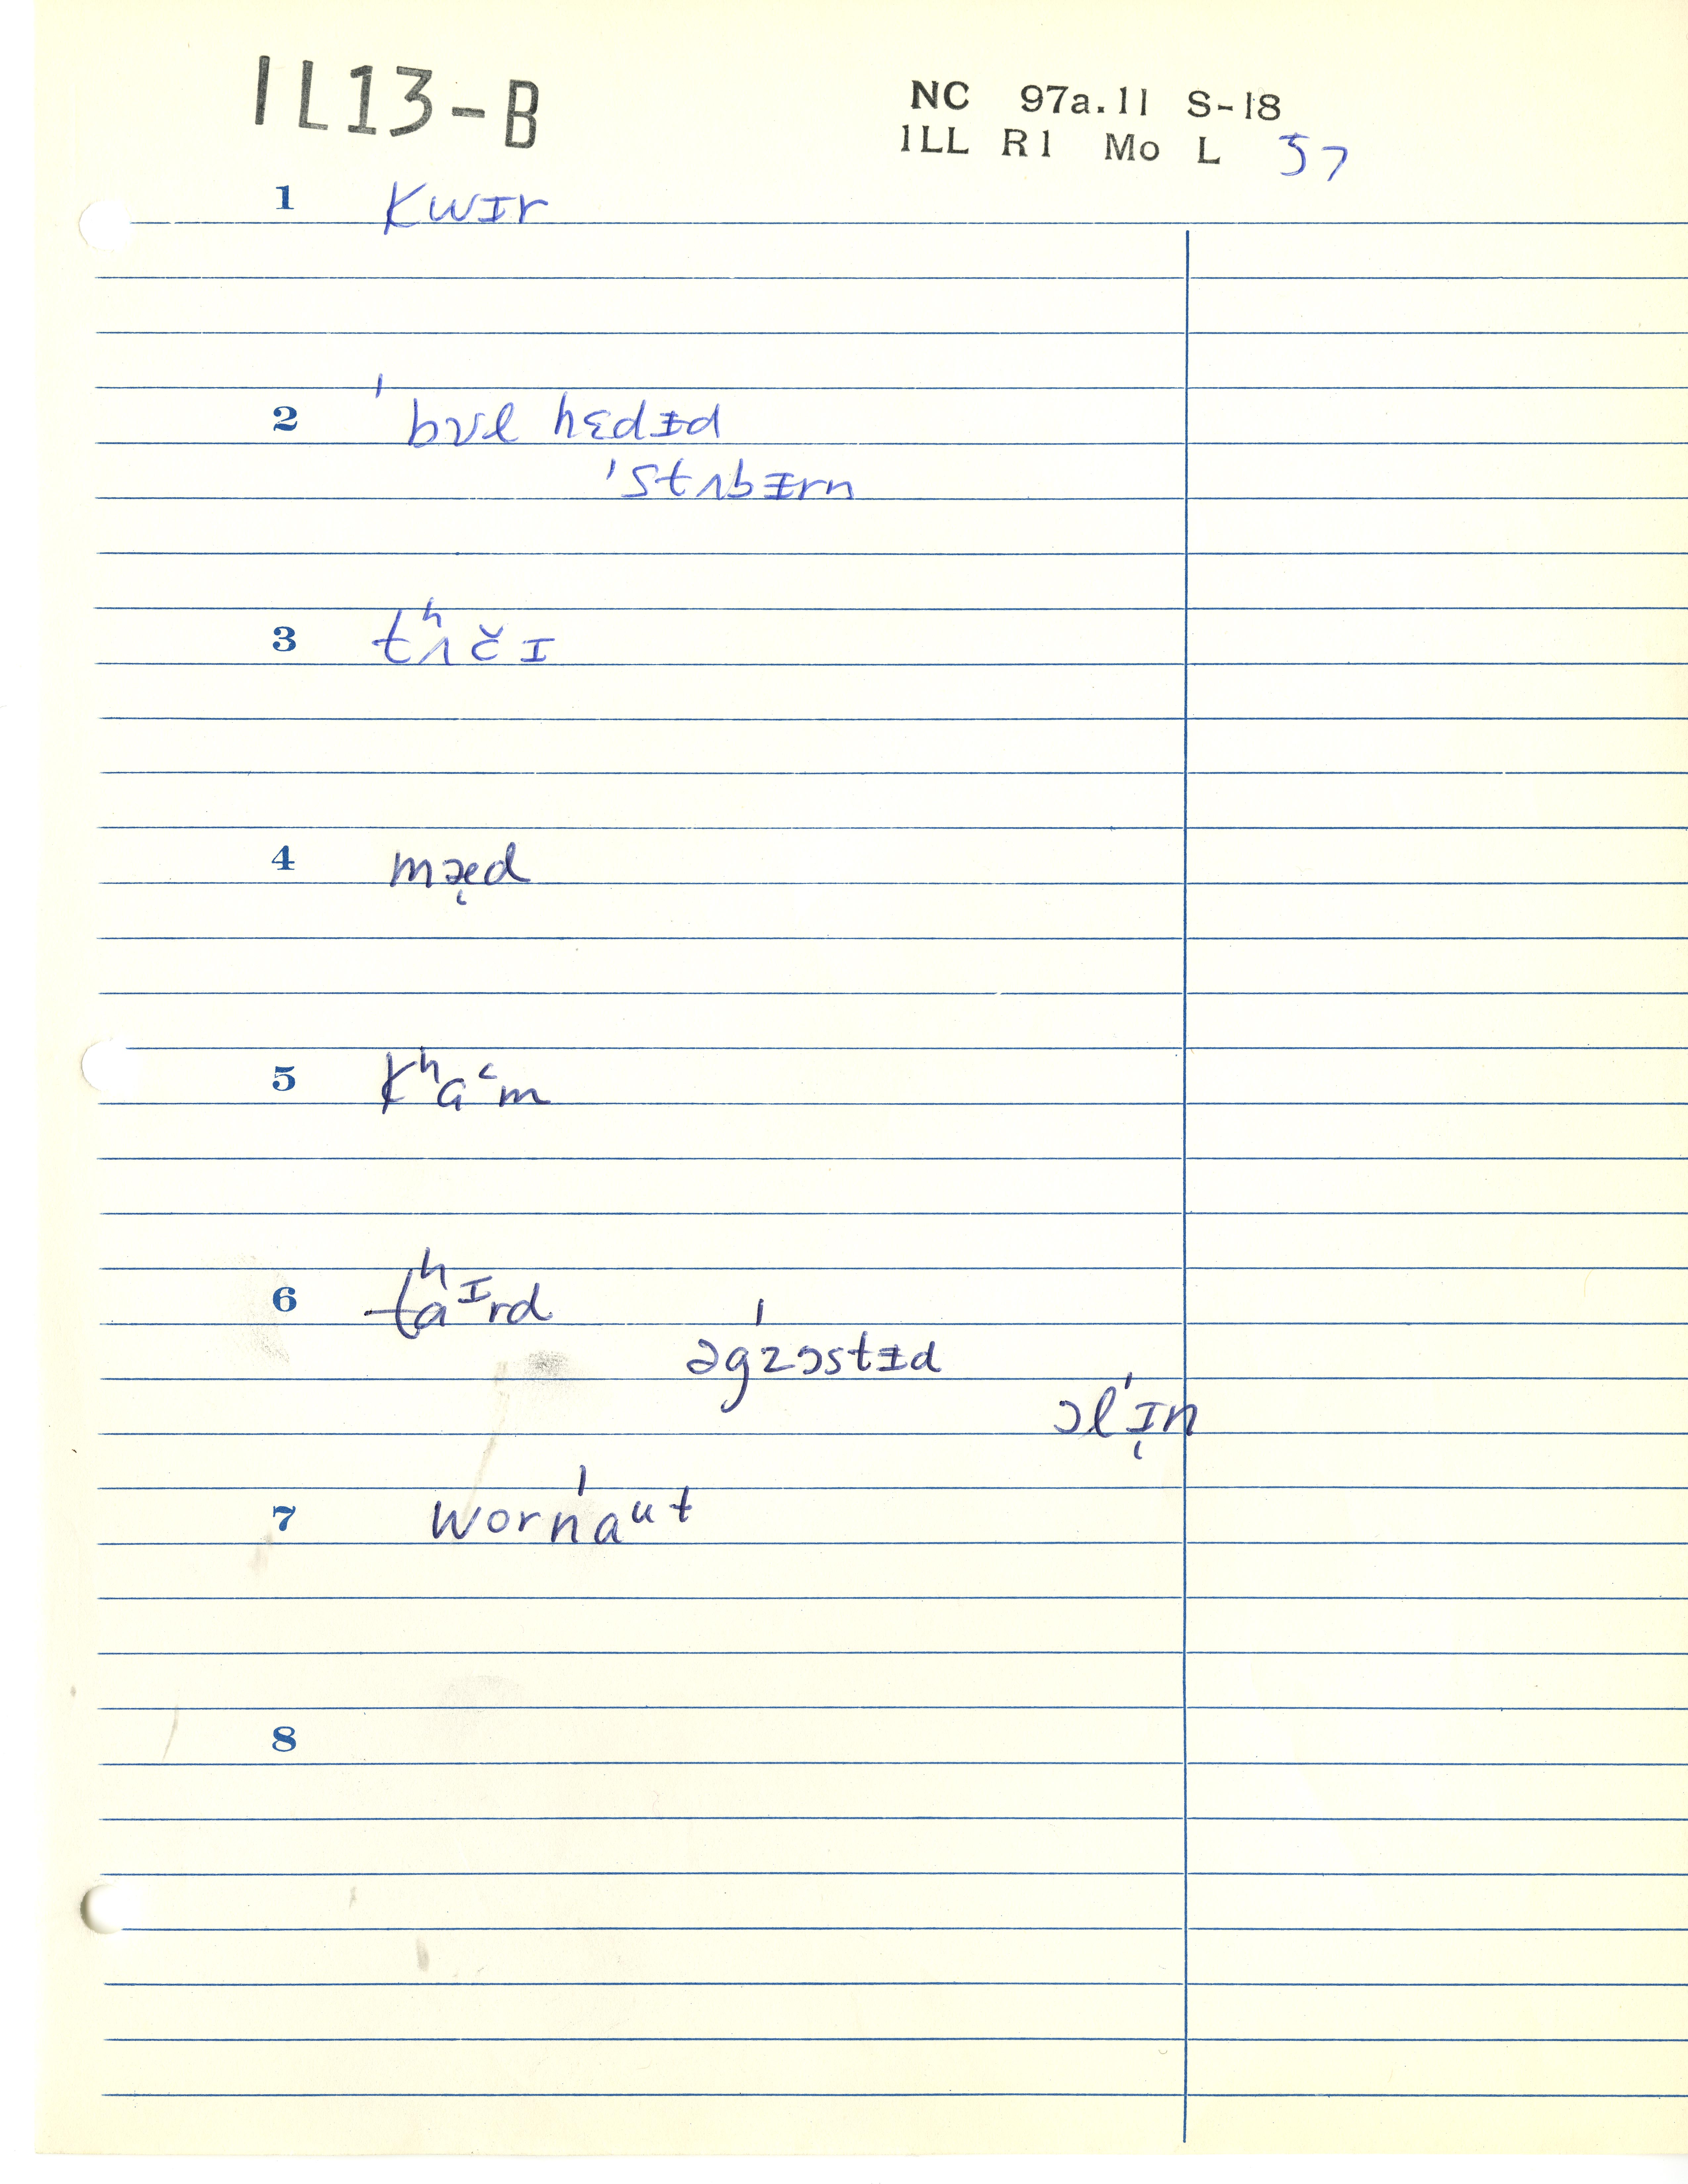 IL13-B
NC 97a.11 S-18
ILL R1 Mo L 57
1 kwɪr
2 ˈbʊl hɛdᵻd
ˈstʌbᵻrn
3 tʰʌčɪ
4 mæ̨d
5 kʰɑ˂m
6 tʰaᶦrd
əgˈzɔstᵻd
ɔlˈɪ̨n
7 worˈnaᵘt
8